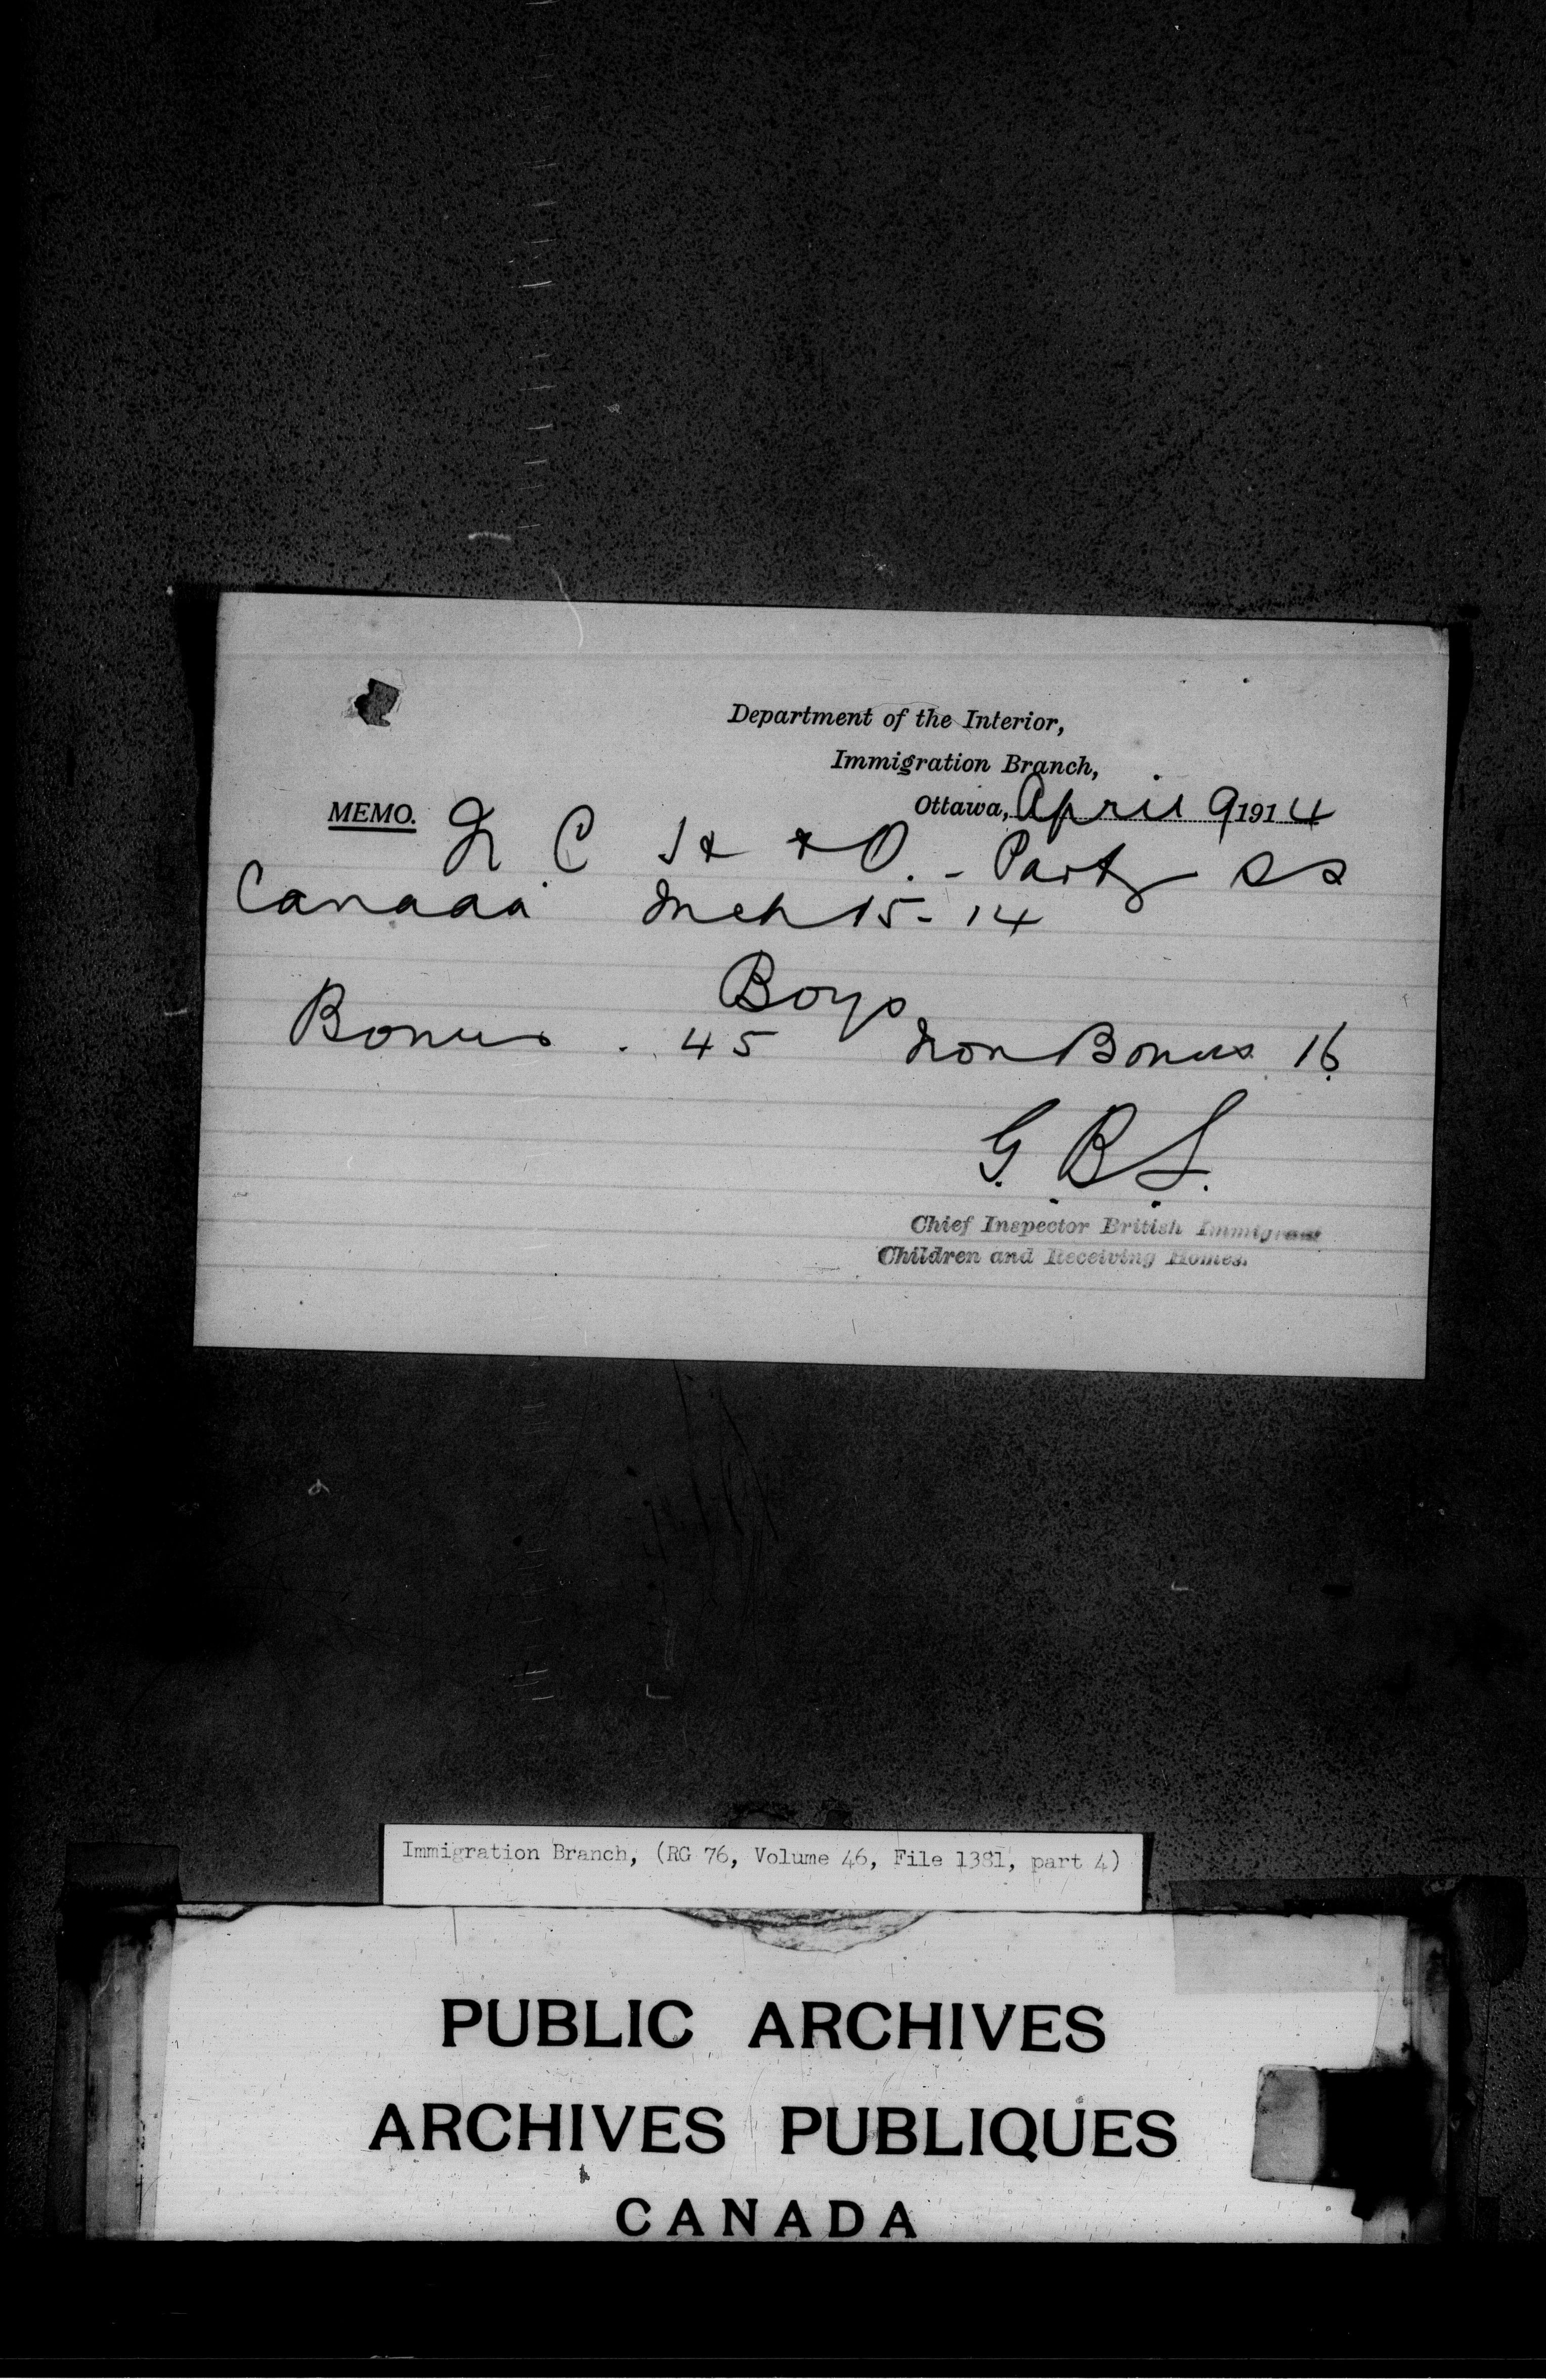 Department of the Interior,
Immigration Branch,
Ottawa, April 9 1914
MEMO. N C H & O. - Party SS
Canada Mch 15 - 14
Boys
Bonus . 45 Non Bonus 16
G. B. S.
Chief Inspector British Immigrant
Children and Receiving Homes.
Immigration Branch, (RG 76, Volume 46, File 1381, part 4)
PUBLIC ARCHIVES
ARCHIVES PUBLIQUES
CANADA